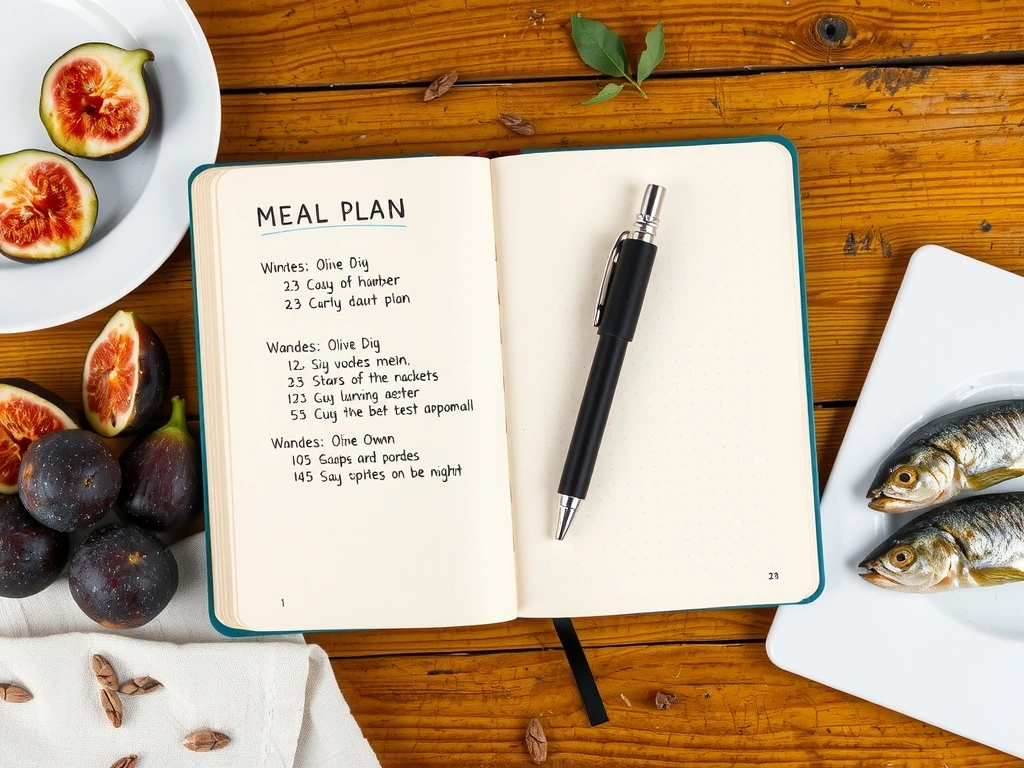 MEAL PLAN
Windes: Olive Diy
23 Casy of harber
23 Carly daut plan
Wandes: Olive Dig
12. Siy vodes mein,
23 Stars of the nackets
123 Guy lurving aester
55 Cuy the bet test appomall
Wandes: Oline Own
105 Saops ard pordes
145 Say opites on be night
1
23